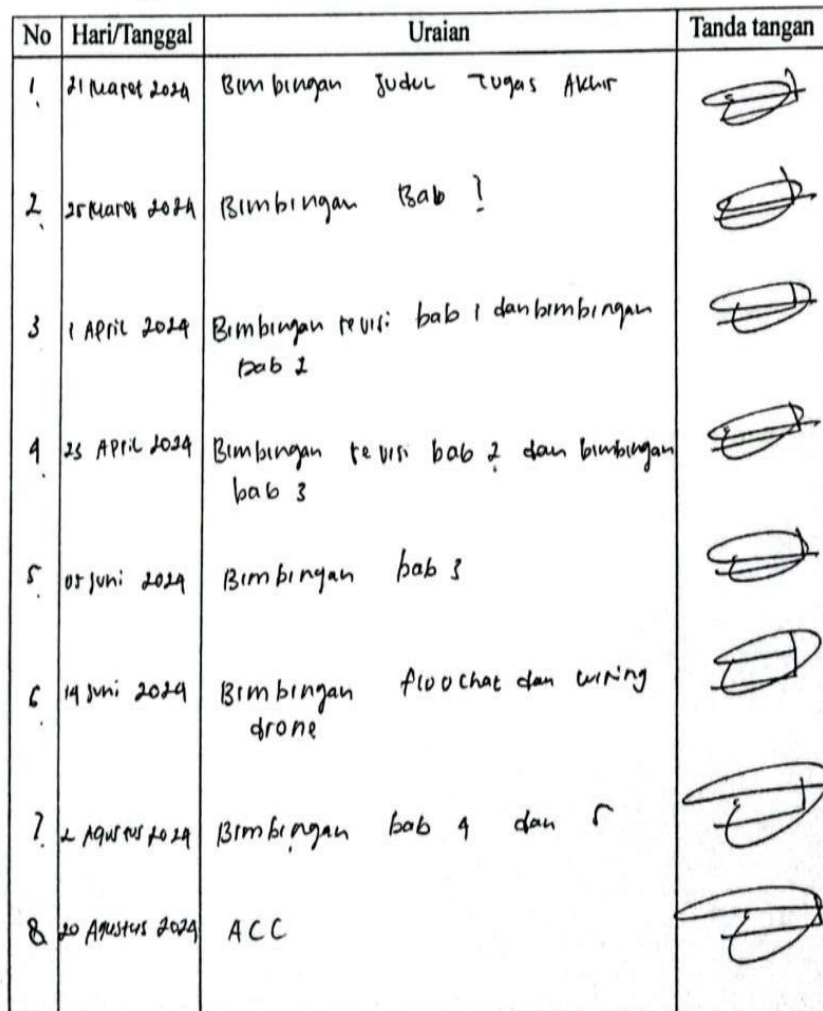 No Hari/Tanggal Uraian Tanda tangan
1. 21 Maret 2024 Bimbingan Judul Tugas Akhir
2. 25 Maret 2024 Bimbingan Bab 1
3 1 April 2024 Bimbingan revisi bab 1 dan bimbingan
bab 2
4. 23 April 2024 Bimbingan revisi bab 2 dan bimbingan
bab 3
5. 05 Juni 2024 Bimbingan bab 3
6. 14 Juni 2024 Bimbingan flowchat dan wiring
drone
7. 2 Agustus 2024 Bimbingan bab 4 dan 5
8. 20 Agustus 2024 ACC